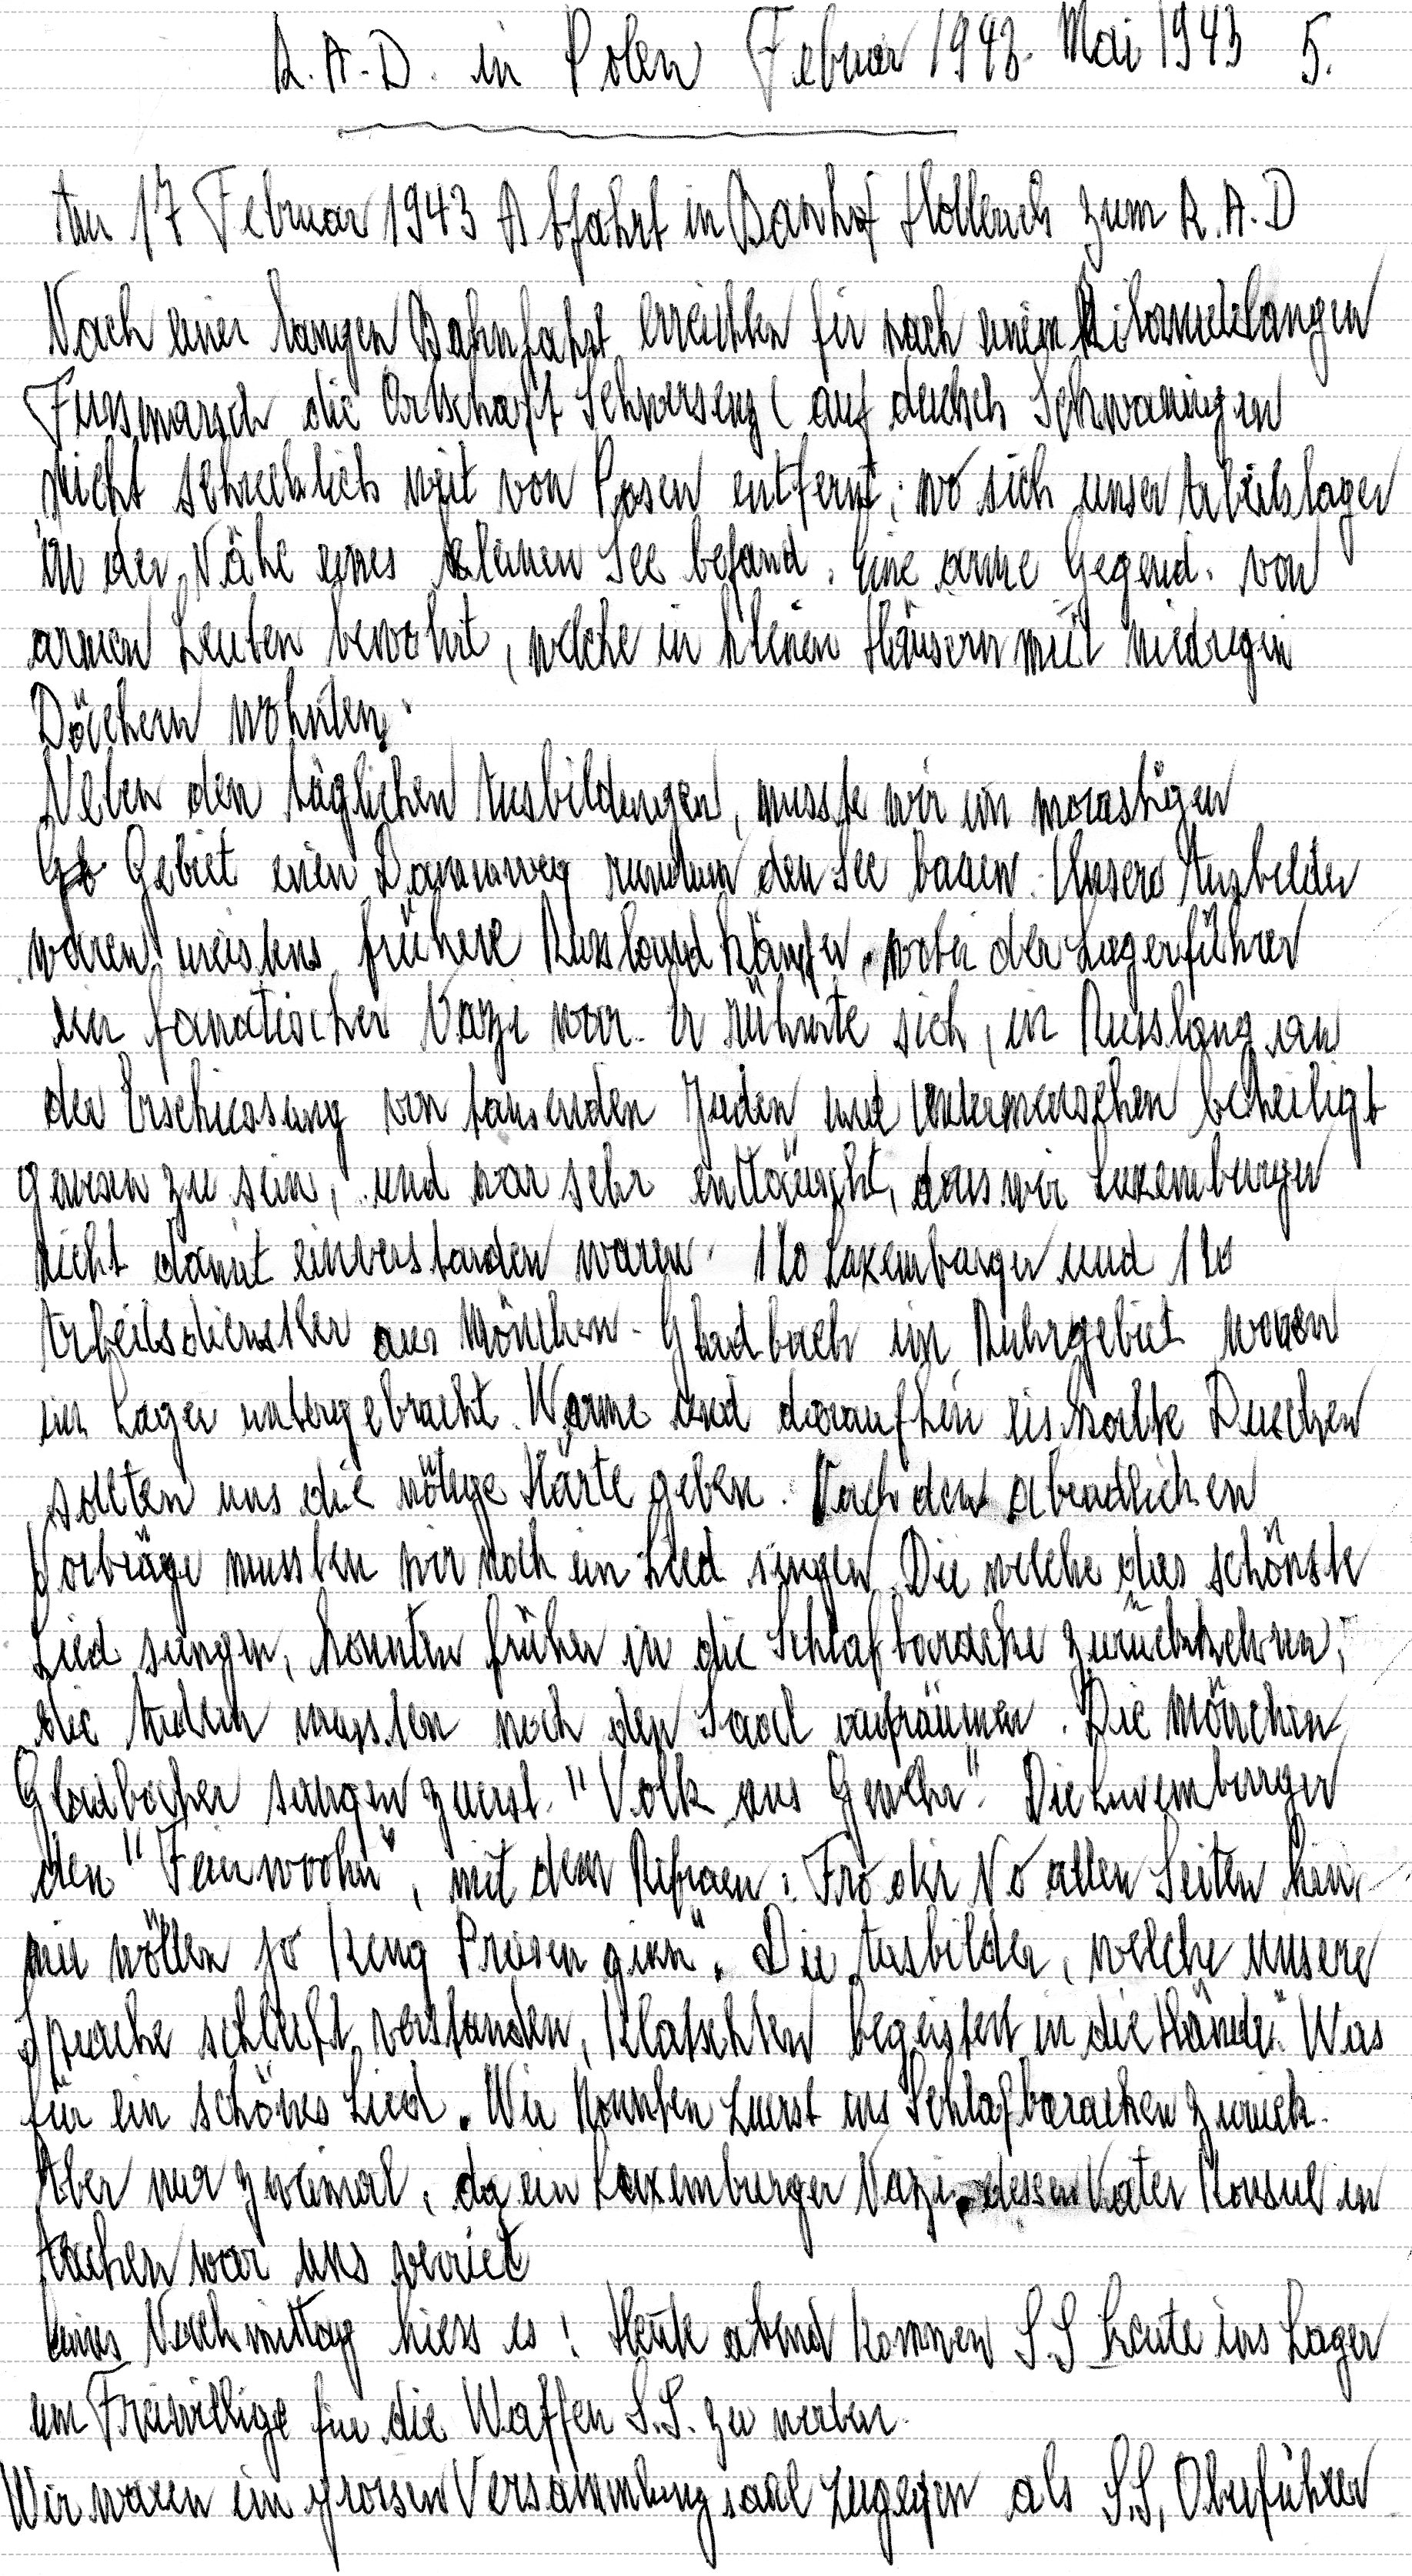 R.A.D. in Polen Februar 1943. Mai 1943 5.
Am 17 Februar 1943 Abfahrt in Banhof Hollerich zum R.A.D
Nach einer langen Bahnfahrt erreichten wir nach einem Kilometerlangen
Fussmarsch die Ortschaft Schwersenz (auf deutsch Schwaningen
nicht schrecklich weit von Posen entfernt, wo sich unser Arbeitslager
in der Nähe eines kleinen See befand. Eine arme Gegend. von
armen Leuten bewohnt, welche in kleinen Häusern mit niedrigen
Dächern wohnten.
Neben den täglichen Ausbildungen, musste wir im morastigen
Gebiet einen Dammweg rundum den See bauen. Unsere Ausbilder
waren meistens frühere Russland Kämpfer, wobei der Lagerführer
ein fanatischer Nazi war. Er rühmte sich, in Russland an
der Erschiessung von tausenden Juden und Untermenschen beteiligt
gewesen zu sein, und war sehr enttäuscht, dass wir Luxemburger
nicht damit einverstanden waren. 120 Luxemburger und 120
Arbeitsdienstler aus Mönchen-Gladbach im Ruhrgebiet waren
im Lager untergebracht. Warme und daraufhin eiskalte Duschen
sollten uns die nötige Härte geben. Nach den abendlichen
Vorträge mussten wir noch ein Lied singen. Die welche das schönste
Lied sungen, konnten früher in die Schlafbaracke zurückkehren,
die Andern mussten noch den Saal aufräumen. Die Mönchen
Gladbacher sungen zuerst. "Volk ans Gewehr". Die Luxemburger
den "Feierwoohn", mit dem Refraen: Fro dir No allen Seiten hin,
mir wöllen jo keng Preisen ginn". Die Ausbilder, welche unsere
Sprache schlecht verstanden, klatschten begeistert in die Hände. Was
für ein schönes Lied. Wir konnten zuerst ins Schlafbaracken zurück.
Aber nur zweimal, da ein Luxemburger Nazi, dessen Vater Konsul in
Aachen war uns verriet
Eines Nachmittag hiess es: Heute abend kommen S.S Leute ins Lager
um Freiwillige für die Waffen S.S. zu werben.
Wir waren im grossen Versammlungsaal zugegen als S.S, Oberführer